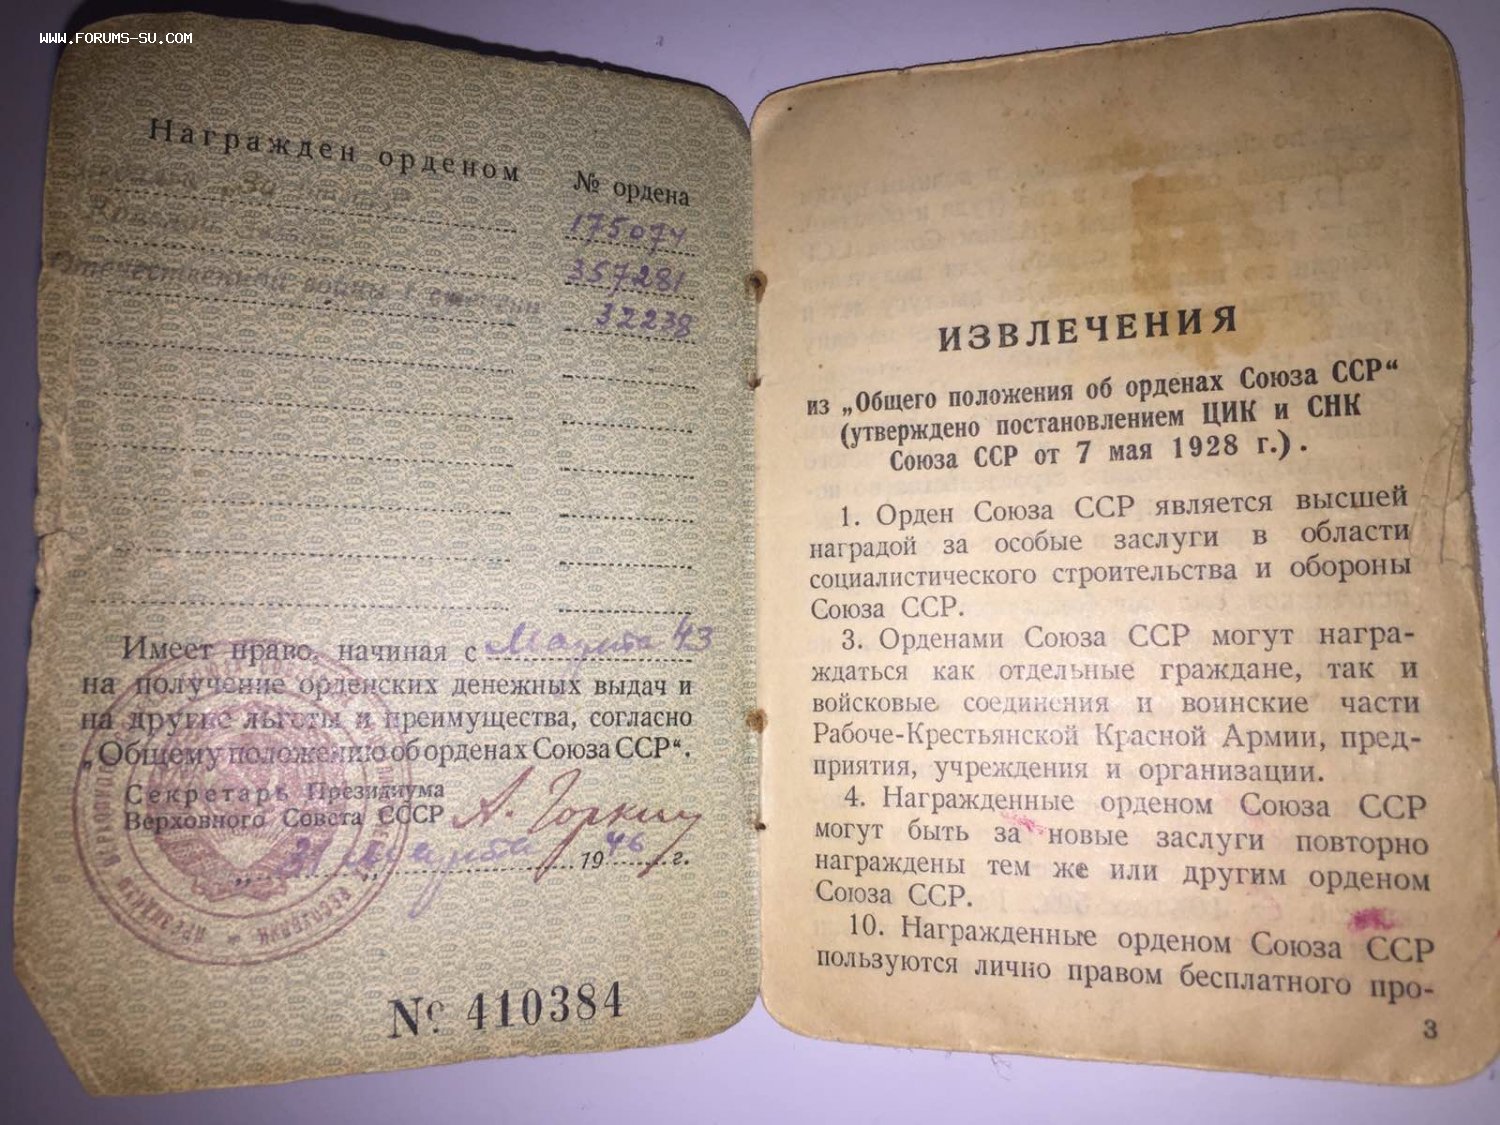 WWW.FORUMS-SU.COM
Награжден орденом
№ ордена
медаль „За
175074
Красная Звезда
357281
Отечественной войны 1 степени
32238
Имеет право, начиная с Марта 43
на получение орденских денежных выдач и
на другие льготы и преимущества, согласно
„Общему положению об орденах Союза ССР“.
Секретарь Президиума
Верховного Совета СССР А. Горкин
„31“ марта 1946 г.
№ 410384
ИЗВЛЕЧЕНИЯ
из „Общего положения об орденах Союза ССР“
(утверждено постановлением ЦИК и СНК
Союза ССР от 7 мая 1928 г.).
1. Орден Союза ССР является высшей
наградой за особые заслуги в области
социалистического строительства и обороны
Союза ССР.
3. Орденами Союза ССР могут награ-
ждаться как отдельные граждане, так и
войсковые соединения и воинские части
Рабоче-Крестьянской Красной Армии, пред-
приятия, учреждения и организации.
4. Награжденные орденом Союза ССР
могут быть за новые заслуги повторно
награждены тем же или другим орденом
Союза ССР.
10. Награжденные орденом Союза ССР
пользуются лично правом бесплатного про-
3